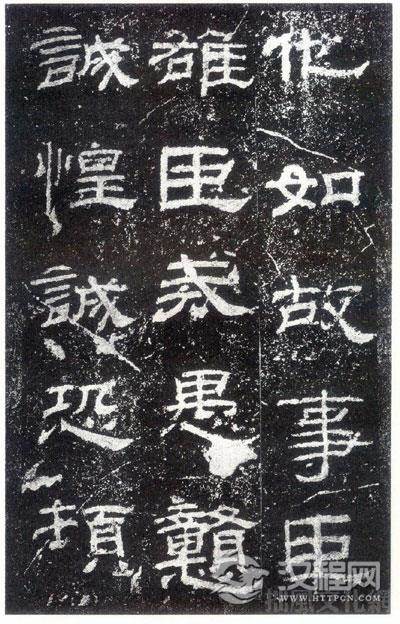 他如故事臣
雄臣戒愚戇
誠惶誠恐頓
汉程网
WWW.HTTPCN.COM